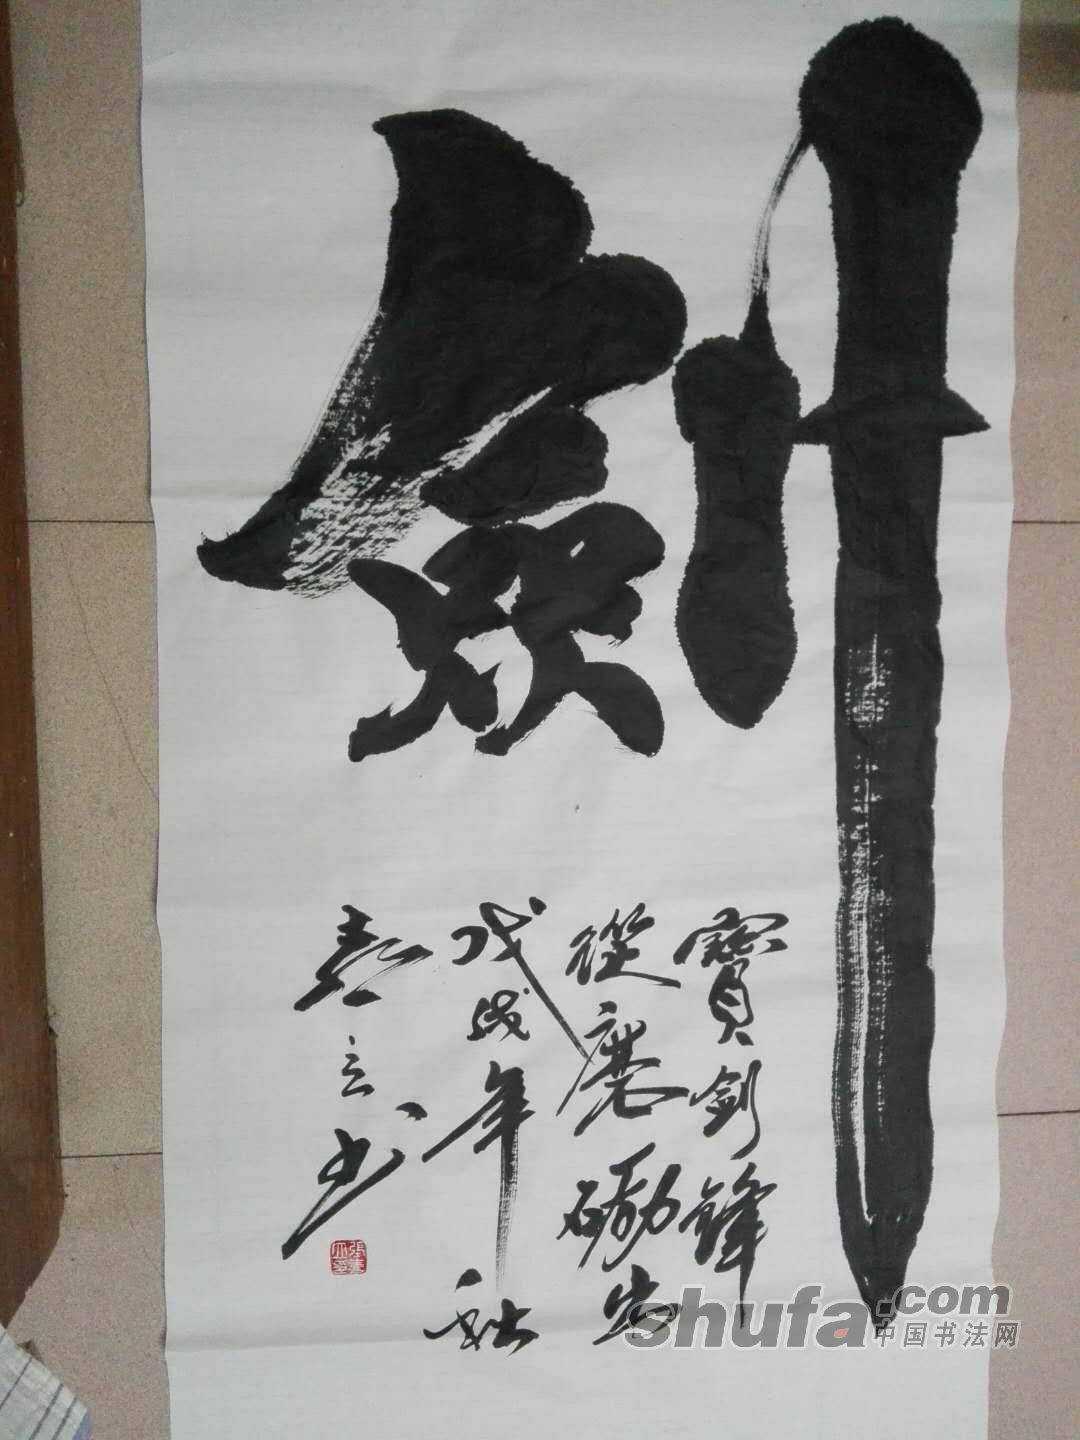 劍
寶劍鋒
從磨礪出
戊戌年秋
建立书
shufa.com
中国书法网